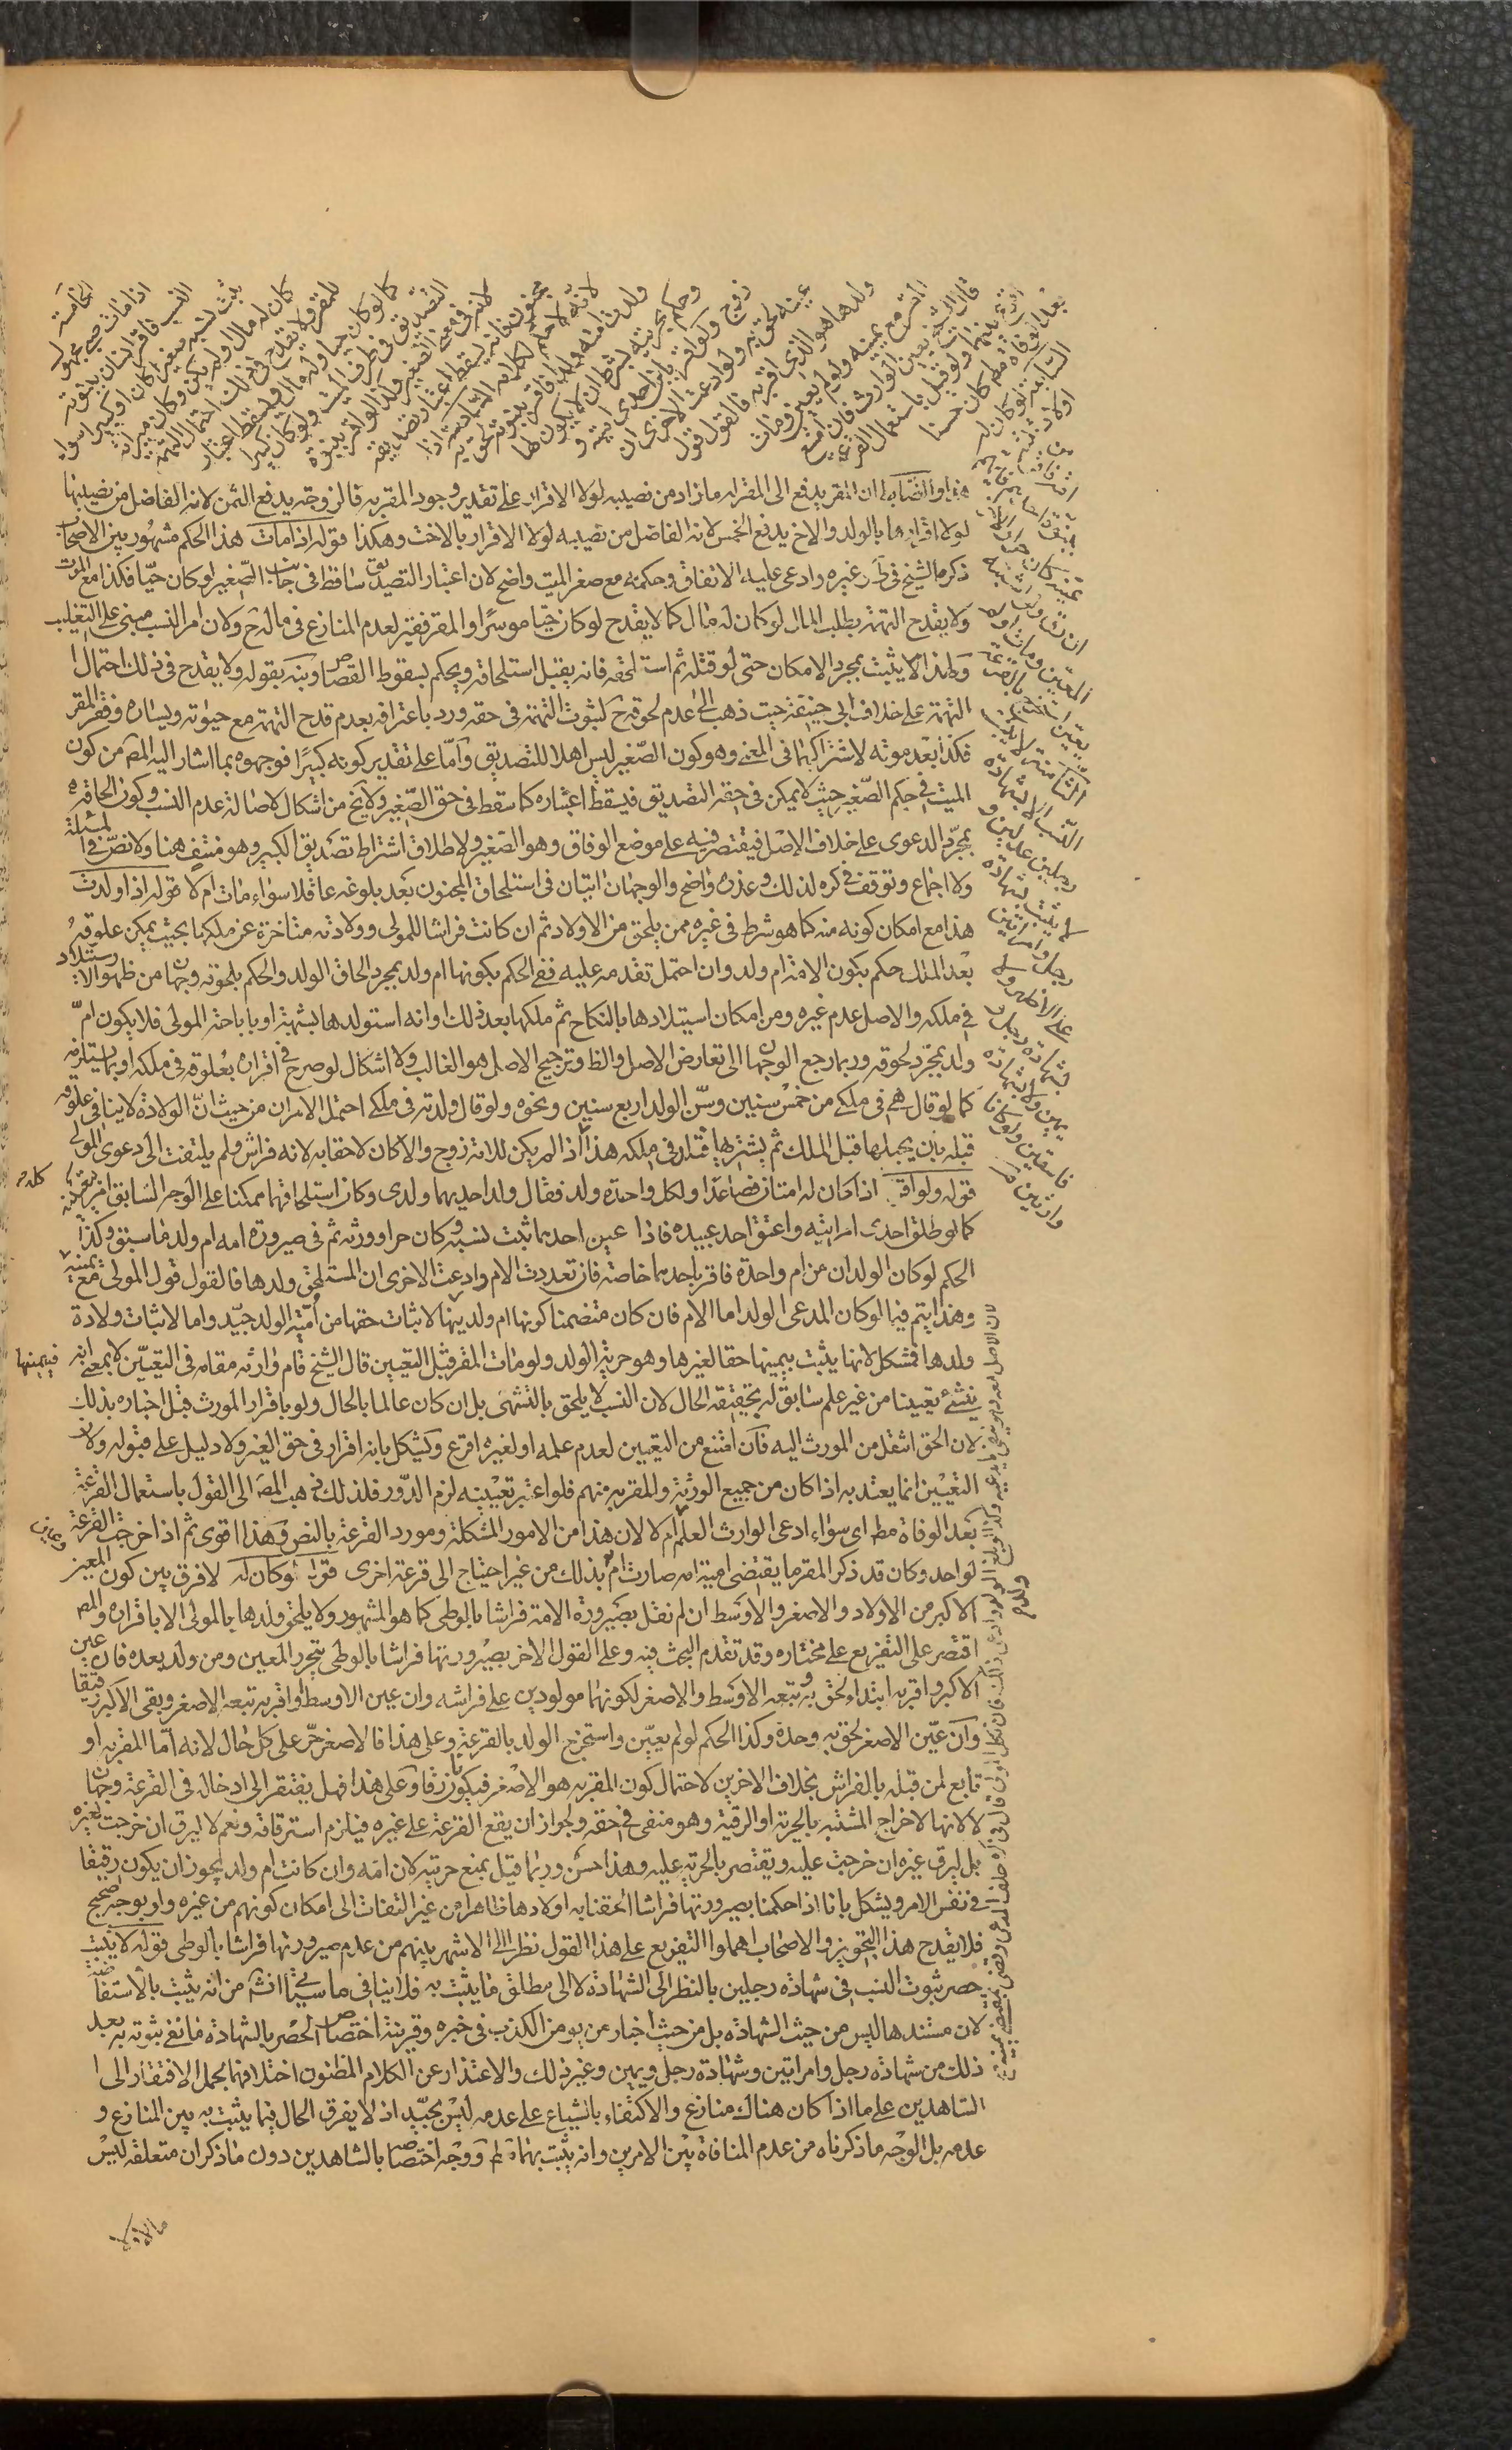 الخامسة لو
اذا مات صبى مجهول
النسب فاقر انسان ببنوته
ثبت نسبه صغيرا كان او كبيرا سواء
كان له مال او لم يكن وكان ميراثه
للمقر ولا يقدح فى ذلك احتمال التهمة
كما لو كان حيا وله مال ويسقط اعتبار
التصديق فى طرف الميت ولو كان كبيرا
لانه فى معنى الصغير وكذا لو اقر ببنوة
مجنون فانه يسقط اعتبار تصديقه
لانه لا حكم لكلامه السادسة اذا
ولدت امته ولدا فاقر ببنوته لحق به
وحكم بحريته بشرط ان لا يكون لها
زوج ولو اقر بابن احدى امتيه و
عينه لحق به ولو ادعت الاخرى ان
ولدها هو الذى اقر به فالقول قول
المقر مع يمينه ولو لم يعين ومات
قال الشيخ يعين الوارث فان امتنع
اقرع بينهما ولو قيل باستعمال القرعة
بعد الوفاة مطلقا كان حسنا
السابعة لو كان له
اولاد ثلثة
من
امة فاقر ببنوة
احدهم فايهم
عينه كان حرا والاخران
رقا ولو اشتبه
المعين ومات او لم
يعين استخرج بالقرعة
الثامنة لا يثبت
النسب الا بشهادة
رجلين عدلين و
لا يثبت بشهادة
رجل وامراتين
على الاظهر ولا
بشهادة رجل و
يمين ولا بشهادة
فاسقين ولو كانا
وارثين
هذا والضابط ان المقر يدفع الى المقر له ما زاد من نصيبه لولا الاقرار على تقدير وجود المقر به فالزوجة يدفع الثمن لانه الفاضل من نصيبها
لولا اقرارها بالولد والاخ يدفع الخمس لانه الفاضل من نصيبه لولا الاقرار بالاخت وهكذا قوله اذا مات هذا الحكم مشهور بين الاصحاب
ذكره الشيخ فى ط وغيره وادعى عليه الاتفاق وحكمه مع صغر الميت واضح لان اعتبار التصديق ساقط فى جانب الصغير لو كان حيا فكذا مع الموت
ولا يقدح التهمة بطلب المال لو كان له مال كما لا يقدح لو كان حيا موسرا والمقر فقير لعدم المنازع فى ماله ح ولان امر النسب مبنى على التغليب
ولهذا لا يثبت بمجرد الامكان حتى لو قتله ثم استلحقه فانه يقبل استلحاقه ويحكم بسقوط القصاص وبنيه بقوله ولا يقدح فى ذلك احتمال ا
التهمة على خلاف ابى حنيفة حيث ذهب الى عدم لحوقه ح لثبوت التهمة فى حقه ورد باعترافه بعدم قدح التهمة مع حيوته ويساره وفقر المقر
فكذا بعد موته لاشتراكهما فى المعنى وهو كون الصغير ليس اهلا للتصديق واما على تقدير كونه كبيرا فوجهوه بما اشار اليه المصـ من كون
الميت فى حكم الصغير حيث لا يمكن فى حقه التصديق فيسقط اعتباره كما سقط فى حق الصغير ولا يخ من اشكال لاصالة عدم النسب وكون الحاقه
بمجرد الدعوى على خلاف الاصل فيقتصر فيه على موضع الوفاق وهو الصغير ولاطلاق اشتراط تصديق الكبير وهو منتف هنا ولا نص فى المسئلة
ولا اجماع وتوقف فى كره لذلك وعذره واضح والوجهان اتيان فى استلحاق المجنون بعد بلوغه عاقلا سواء مات ام لا قوله اذا ولدت
هذا مع امكان كونه منه كما هو شرط فى غيره ممن يلحق من الاولاد ثم ان كانت فراشا للمولى وولادته متاخرة عن ملكها بحيث يمكن علوقه
بعد الملك حكم بكون الامة ام ولد وان احتمل تقدمه عليه ففى الحكم بكونها ام ولد بمجرد الحاق الولد والحكم بلحوقه وجهان من ظهور الاستيلاد
فى ملكه والاصل عدم غيره ومن امكان استيلادها بالنكاح ثم ملكها بعد ذلك او انه استولدها بشبهة او باباحة المولى فلا يكون ام
ولد بمجرد لحوقه وربما رجع الوجهان الى تعارض الاصل والظ وترجيح الاصل هو الغالب ولا اشكال لو صرح فى اقراره بعلوقه فى ملكه او بما يستلزمه
كما لو قال هى فى ملكى من خمس سنين وسن الولد اربع سنين ونحوه ولو قال ولدته فى ملكى احتمل الامران من حيث ان الولادة لا ينافى علوقه
قبله بان يحبلها قبل الملك ثم يشتريها فتلد فى ملكه هذا اذا لم يكن للامة زوج والا كان لاحقا به لانه فراش ولم يلتفت الى دعوى المولى
قوله ولو اقر اذا كان له امتان فصاعدا ولكل واحدة ولد فقال ولد احديهما ولدى وكان استلحاقهما ممكنا على الوجه السابق امر بتعيينه
كما لو طلق احدى امراتيه واعتق احد عبيده فاذا عين احدهما ثبت نسبه وكان حرا وورثه ثم فى صيرورة امه ام ولد ما سبق وكذا
الحكم لو كان الولدان من ام واحدة فاقر باحدهما خاصة فان تعددت الام وادعت الاخرى ان المستلحق ولدها فالقول قول المولى مع يمينه
وهذا يتم فيما لو كان المدعى الولد اما الام فان كان متضمنا كونها ام ولد يمينها لاثبات حقها من امية الولد جيد واما لاثبات ولادة
ولدها فمشكل لانها يثبت بيمينها حقا لغيرها وهو حرية الولد ولو مات المقر قبل التعيين قال الشيخ قام وارثه مقامه فى التعيين لا بمعنى انه
ينشئ تعيينا من غير علم سابق له بحقيقة الحال لان النسب لا يلحق بالتشهى بل ان كان عالما بالحال ولو باقرار المورث قبل اخباره بذلك
لان الحق انتقل من المورث اليه فان امتنع من التعيين لعدم علمه او لغيره اقرع ويشكل بانه اقرار فى حق الغير ولا دليل على قبوله ولان
التعيين انما يعتد به اذا كان من جميع الورثة والمقر به منهم فلو اعتبر تعيينه لزم الدور فلذلك ذهب المصـ الى القول باستعمال القرعة
بعد الوفاة مطـ اى سواء ادعى الوارث العلم ام لا لان هذا من الامور المشكلة ومورد القرعة بالنص وهذا اقوى ثم اذا خرجت القرعة
لواحد وكان قد ذكر المقر ما يقتضى امية امه صارت ام بذلك من غير احتياج الى قرعة اخرى قوله لو كان له لا فرق بين كون المعين
الاكبر من الاولاد والاصغر والاوسط ان لم نقل بصيرورة الامة فراشا بالوطى كما هو المشهور ولا يلحق ولدها بالمولى الا باقراره والمصـ
اقتصر على التفريع على مختاره وقد تقدم البحث فيه وعلى القول الاخر بصيرورتها فراشا بالوطى يتحرر المعين ومن ولد بعده فان عين
الاكبر واقر به ابتداء لحق به وتبعه الاوسط والاصغر لكونهما مولودين على فراشه وان عين الاوسط واقر به تبعه الاصغر وبقى الاكبر رقيقا
وان عين الاصغر لحق به وحده وكذا الحكم لو لم يعين واستخرج الولد بالقرعة وعلى هذا فالاصغر حر على كل حال لانه اما المقر به او
تابع لمن قبله بالفراش بخلاف الاخرين لاحتمال كون المقر به هو الاصغر فيكونان رقا وعلى هذا فهل يفتقر الى ادخاله فى القرعة وجهان
لا لانها لاخراج المشتبه بالحرية او الرقية وهو منفى فى حقه ولجواز ان يقع القرعة على غيره فيلزم استرقاقه ونعم لا ليرق ان خرجت لغيره
بل ليرق غيره ان خرجت عليه ويقتصر بالحرية عليه وهذا حسن وربما قيل بمنع حريته لان امه وان كانت ام ولد يجوز ان يكون رقيقا
فى نفس الامر ويشكل بانا اذا حكمنا بصيرورتها فراشا الحقنا به اولادها ظاهرا من غير التفات الى امكان كونهم من غيره ولو بوجه صحيح
فلا يقدح هذا التجويز والاصحاب اهملوا التفريع على هذا القول نظرا الى الاشهر بينهم من عدم صيرورتها فراشا بالوطى قوله لا يثبت
حصر ثبوت النسب فى شهادة رجلين بالنظر الى الشهادة لا الى مطلق ما يثبت به فلا ينافى ما سيجئ انش من انه يثبت بالاستفاضة
لان مستندها ليس من حيث الشهادة بل من حيث اخبار من يومن الكذب فى خبره وقرينة اختصاص الحصر بالشهادة ما نفى ثبوته به بعد
ذلك من شهادة رجل وامراتين وشهادة رجل ويمين وغير ذلك والاعتذار عن الكلام المظنون اختلافهما بحمل الافتقار الى ا
الشاهدين على ما اذا كان هناك منازع والاكتفاء بالشياع على عدمه ليس بجيد اذ لا يفرق الحال فيما يثبت به بين المنازع و
عدمه بل الوجه ما ذكرناه من عدم المنافاة بين الامرين وانه يثبت بهما مط ووجه اختصاص بالشاهدين دون ما ذكر ان متعلقه ليس
مالا ولا